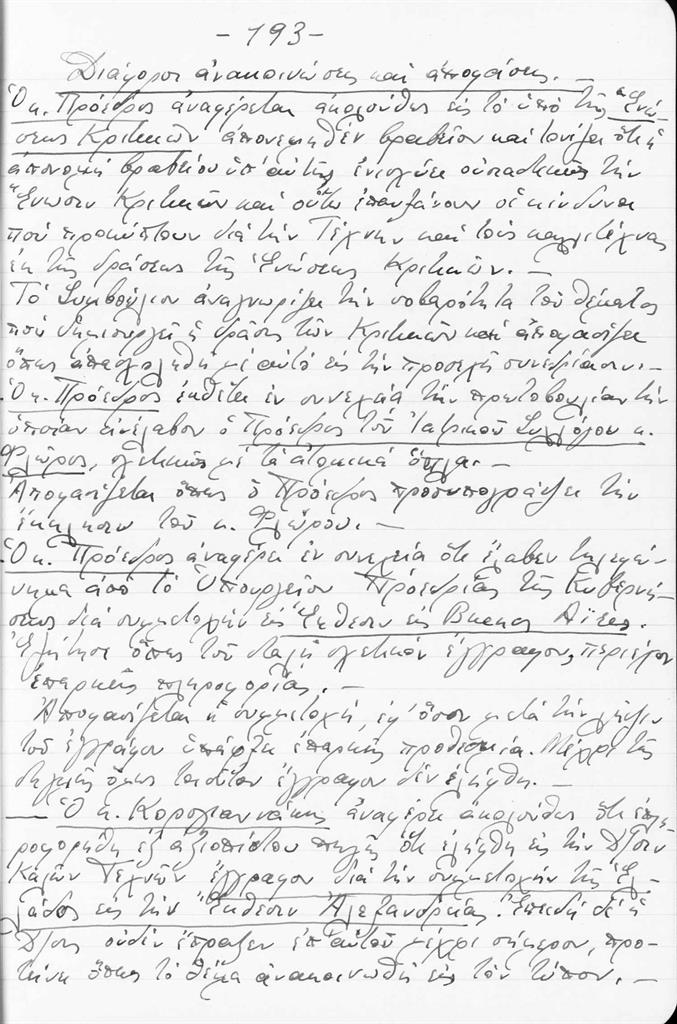 - 193 -
Διάφοροι ἀνακοινώσεις καὶ ἀποφάσεις. -
Ὁ κ. Πρόεδρος ἀναφέρεται ἀκολούθως εἰς τὸ ὑπὸ τῆς Ἑνώ-
σεως Κριτικῶν ἀπονεμηθὲν βραβεῖον καὶ τονίζει ὅτι ἡ
ἀπονομὴ βραβείου ὑπ' αὐτῆς ἐνισχύει οὐσιαστικῶς τὴν
Ἕνωσιν Κριτικῶν καὶ οὕτω ἐπαυξάνουν οἱ κίνδυνοι
ποὺ προκύπτουν διὰ τὴν Τέχνην καὶ τοὺς καλλιτέχνας
ἐκ τῆς δράσεως τῆς Ἑνώσεως Κριτικῶν. -
Τὸ Συμβούλιον ἀναγνωρίζει τὴν σοβαρότητα τοῦ θέματος
ποὺ δημιουργεῖ ἡ δρᾶσις τῶν Κριτικῶν καὶ ἀποφασίζει
ὅπως ἀπασχοληθῇ μὲ αὐτὸ εἰς τὴν προσεχῆ συνεδρίασιν. -
Ὁ κ. Πρόεδρος ἐκθέτει ἐν συνεχείᾳ τὴν πρωτοβουλίαν τὴν
ὁποίαν ἀνέλαβον ὁ Πρόεδρος τοῦ Ἰατρικοῦ Συλλόγου κ.
Φλῶρος, σχετικῶς μὲ τὰ ἀτομικὰ ὅπλα. -
Ἀποφασίζεται ὅπως ὁ Πρόεδρος προσυπογράψει τὴν
ἔκκλησιν τοῦ κ. Φλώρου. -
Ὁ κ. Πρόεδρος ἀναφέρει ἐν συνεχείᾳ ὅτι ἔλαβεν τηλεφώ-
νημα ἀπὸ τὸ Ὑπουργεῖον Προεδρίας τῆς Κυβερνή-
σεως διὰ συμμετοχὴν εἰς Ἔκθεσιν εἰς Buenos Aires.
Ἐζήτησε ὅπως τοῦ σταλῇ σχετικὸν ἔγγραφον, περιέχον
ἐπαρκεῖς πληροφορίας. -
Ἀποφασίζεται ἡ συμμετοχή, ἐφ' ὅσον μετὰ τὴν λῆψιν
τοῦ ἐγγράφου ὑπάρξει ἐπαρκὴς προθεσμία. Μέχρι τῆς
στιγμῆς ὅμως τοιοῦτον ἔγγραφον δὲν ἐλήφθη. -
- Ὁ κ. Κορογιαννάκης ἀναφέρει ἀκολούθως ὅτι ἐπλη-
ροφορήθη ἐξ ἀξιοπίστου πηγῆς ὅτι ἐλήφθη εἰς τὴν Δ/σιν
Καλῶν Τεχνῶν ἔγγραφον διὰ τὴν συμμετοχὴν τῆς Ἑλ-
λάδος εἰς τὴν Ἔκθεσιν Ἀλεξανδρείας. Ἐπειδὴ δὲ ἡ
Δ/σις οὐδὲν ἔπραξεν ἐπ' αὐτοῦ μέχρι σήμερον, προ-
τείνει ὅπως τὸ θέμα ἀνακοινωθῇ εἰς τὸν τύπον. -